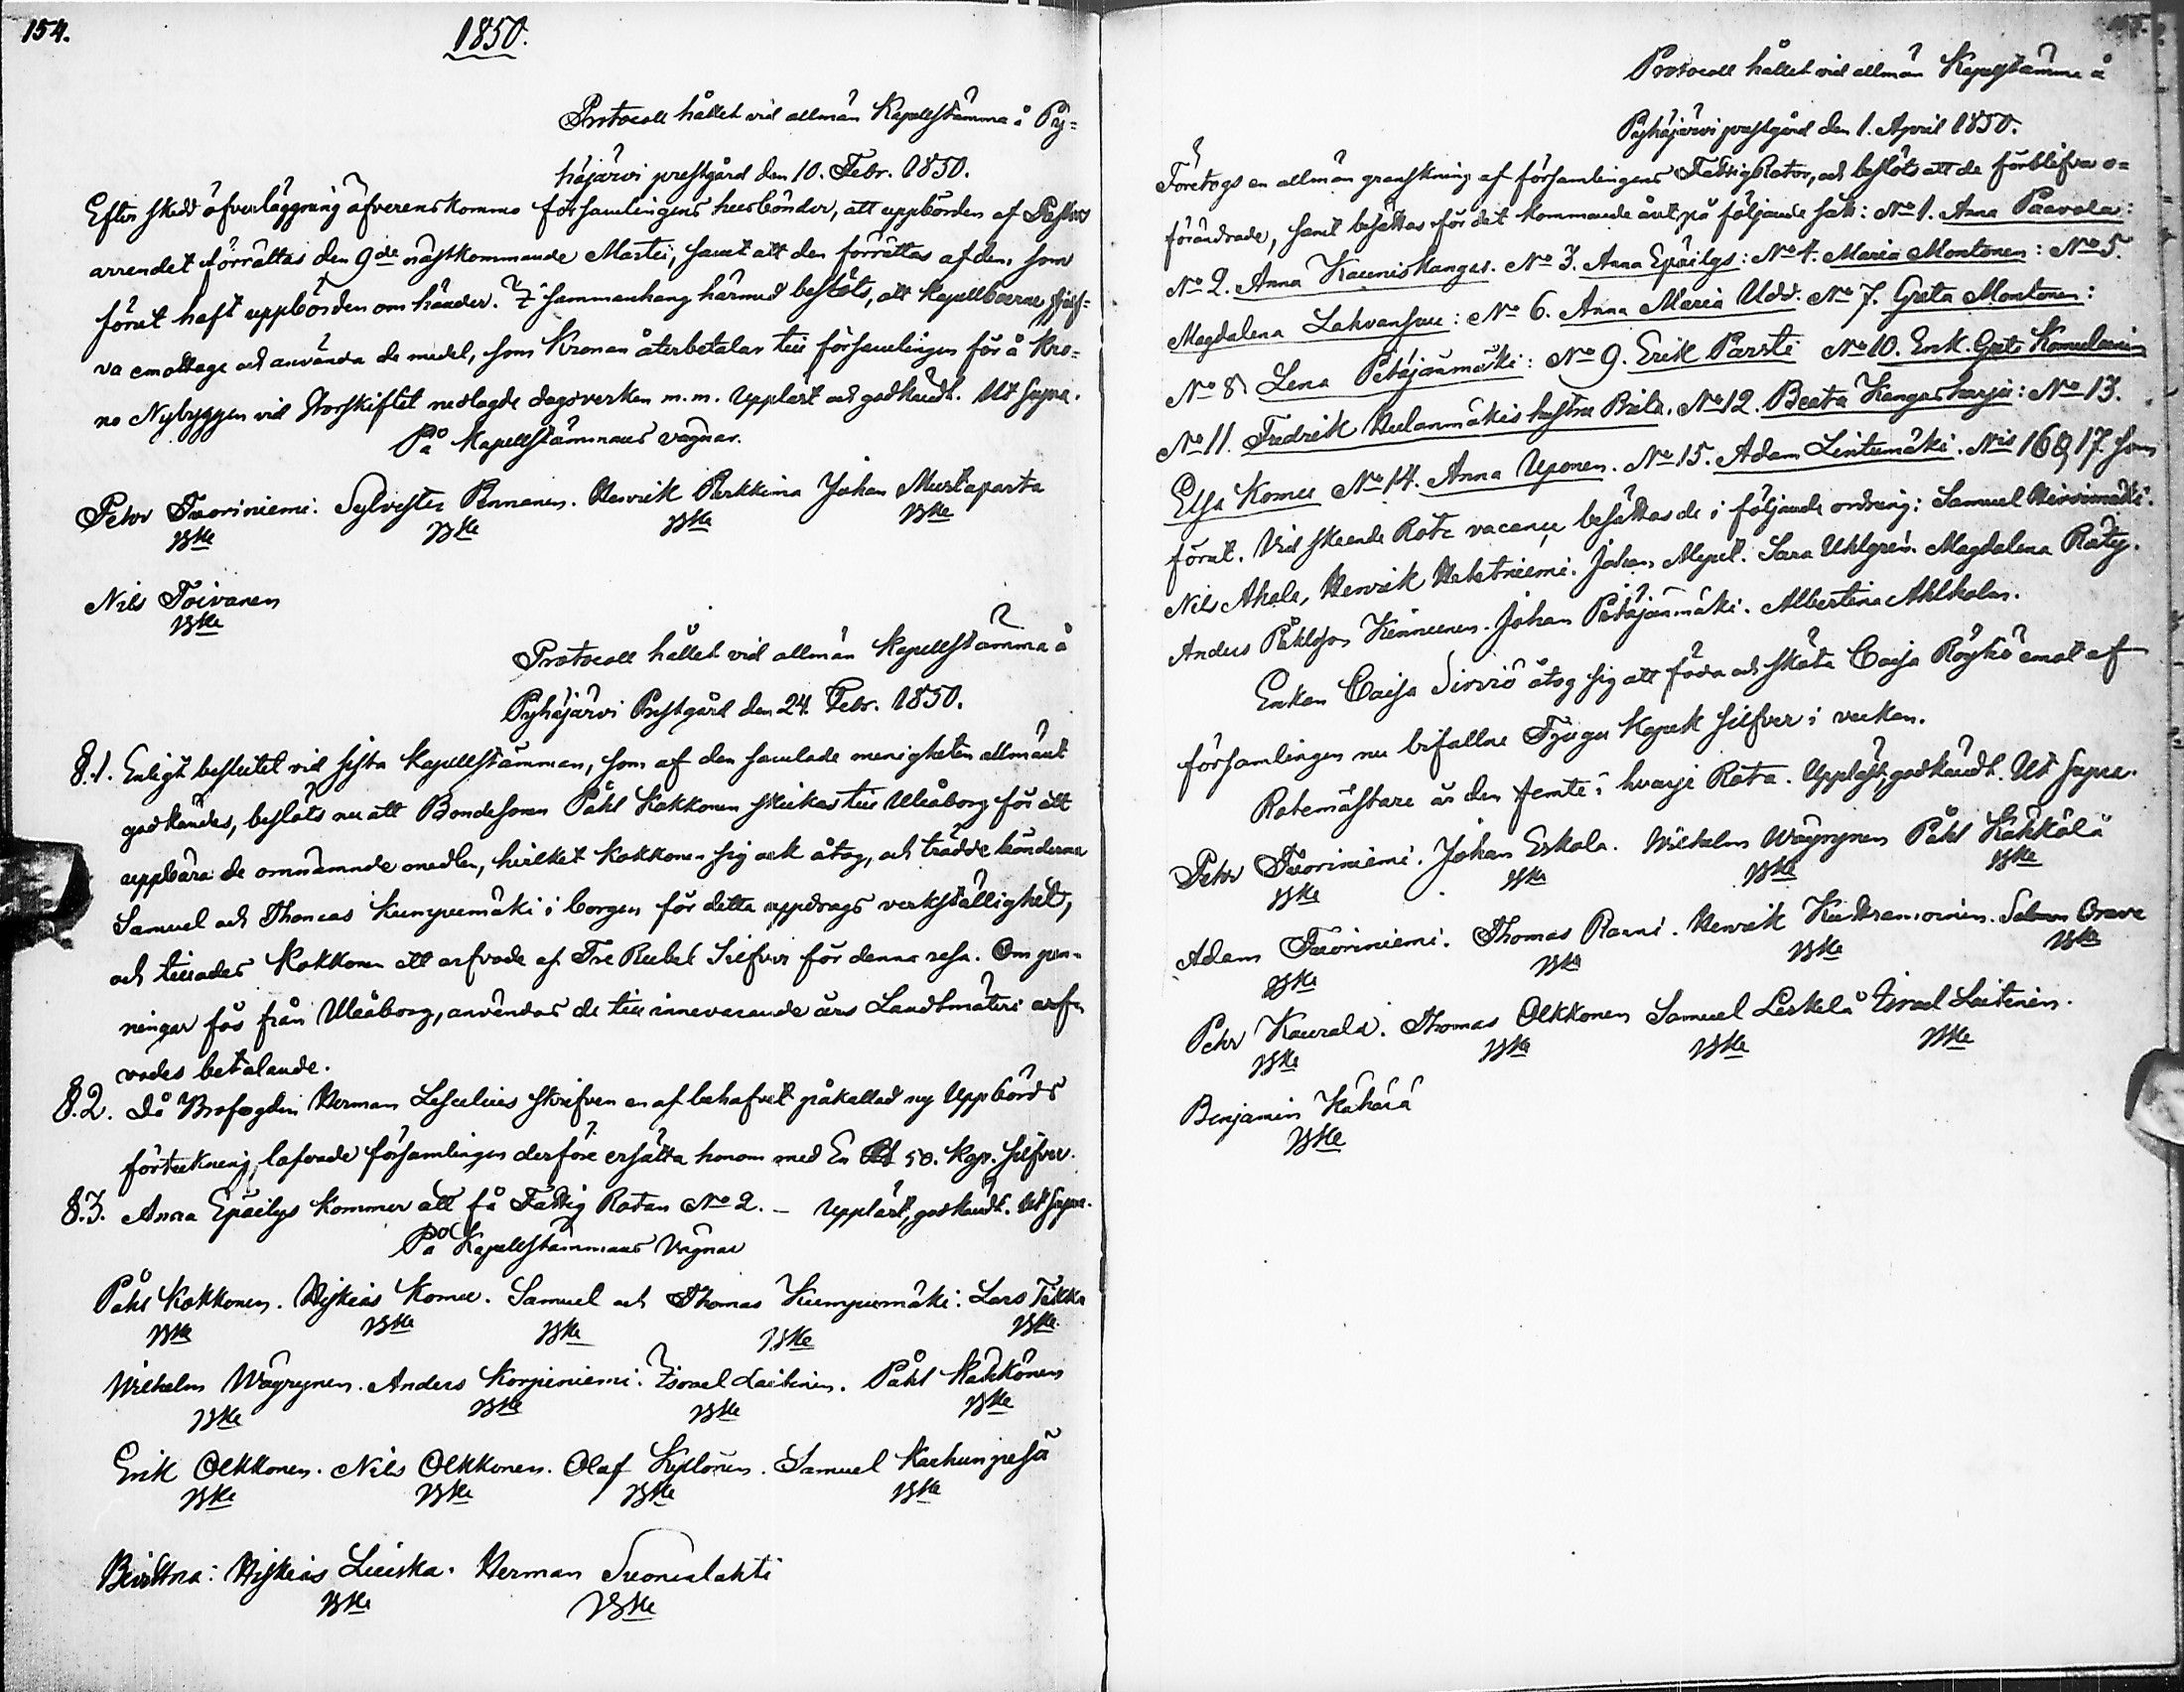 154.
1850.
Protocoll hållet vid allmän Kapellstämma å Py=
häjärvi prestgård den 10. Febr. 1850.
Efter skedd öfverläggning öfverenskommo församlingens husbönder, att uppbörden af
arrendet förrättas den 9de nästkommande Martii, samt att den förrättas af den, som
förut haft uppbörden om händer. I sammanhang härmed beslöts, att kapellboerne sjelf=
va emottaga och använda de medel, som Kronan återbetalar till församlingen för å Kro=
no Nybyggen vid Storskiftet nedlagde dagsverken m.m. Uppläst och godkändt. Ut supra.
På Kapellstämmans vägnar.
Pehr Tuoriniemi. Sylvester Pennanen. Henrik Perkkina Johan Mustaparta
Nils Toivanen
Protocoll hållet vid allmän Kapellstämma å
Pyhäjärvi Prestgård den 24. Febr. 1850.
§.1. Enligt beslutet vid sista Kapellstämman, som af den samlade menigheten allmänt
godkändes, beslöts nu att Bondesonen Påhl Kokkonen skickas till Uleåborg för att
uppbära de omnämnde medlen, hvilket Kokkonen sig ock åtog, och trädde bönderne
Samuel och Thomas Kumpumäki i borgen för detta uppdrags verkställighet,
och tillades Kokkonen ett arfvode af Tre Rubel Silfver för denna resa. Om pen=
ningar fås från Uleåborg, användas de till innevarande års Landtmäteri arf=
vodes betalande.
§.2. Då Brofogden Herman Lesculius skrifven en af behofvet påkallad ny Uppbörds
förteckning, lofvade församlingen derföre ersätta honom med En Rbl 50. Kop. Silfver.
§.3. Anna Epäilys kommer att få Fattig Rotan No 2. – Uppläst, godkändt. Ut supra.
På Kapellstämmans vägnar
Påhl Kokkonen. Hiskias Komu. Samuel och Thomas Kumpumäki. Lars Tikka
Wilhelm Wäyrynen. Anders Korpiniemi. Israel Laitinen. Påhl Kakkonen
Erik Olkkonen. Nils Olkkonen. Olof Kylönen. Samuel Karhunpesä
Bevittna: Hiskias Liuska. Herman Suonialahti
Protocoll hållet vid allmän Kapellstämma å
Pyhäjärvi prestgård den 1. April 1850.
Företogs en allmän granskning af församlingens FattigRotor, och beslöts att de förblifva o=
förändrade, samt besättas för det kommande året på följande sätt: No 1. Anna Paavola:
No 2. Anna Kauniskangas. No 3. Anna Epäilys: No 4. Maria Montonen: No 5.
Magdalena Lahvansuu: No 6. Anna Maria Udd. No 7. Greta Montonen:
No 8 Lena Petäjänmäki: No 9. Erik Parsti No 10. Enk. Greta Komulainen
No 11. Fredrik Hulanmäkis hustru Brita. No 12. Beata Kangasharju: No 13.
Elsa Komu No 14. Anna Uponen. No 15. Adam Lintumäki. Nis 16 & 17. som
förut. Vid skeende Rote vacance besättas de i följande ordning: Samuel Hirvimäki.
Nils Ahola, Henrik Haletniemi. Johan Sara Uhlgrén. Magdalena Räty.
Anders Påhlsson Kinnunen. Johan Petäjänmäki. Albertina Ahlholm.
Enkan Caisa Sirviö åtog sig att föda och sköta Caisa Röyhö emot af
församlingen nu bifallne Tjugu Kopek silfver i veckan.
Rotemästare är den femte i hvarje Rota. Uppläst, godkändt. Ut supra.
Pehr Tuoriniemi. Johan Eskola. Wilhelm Wäyrynen Påhl Käkkälä
Adam Tuoriniemi. Thomas Ranni. Henrik Salomon Orava
Pehr Kaurala. Thomas Olkkonen Samuel Leskelä Israel Laitinen.
Benjamin Kähärä